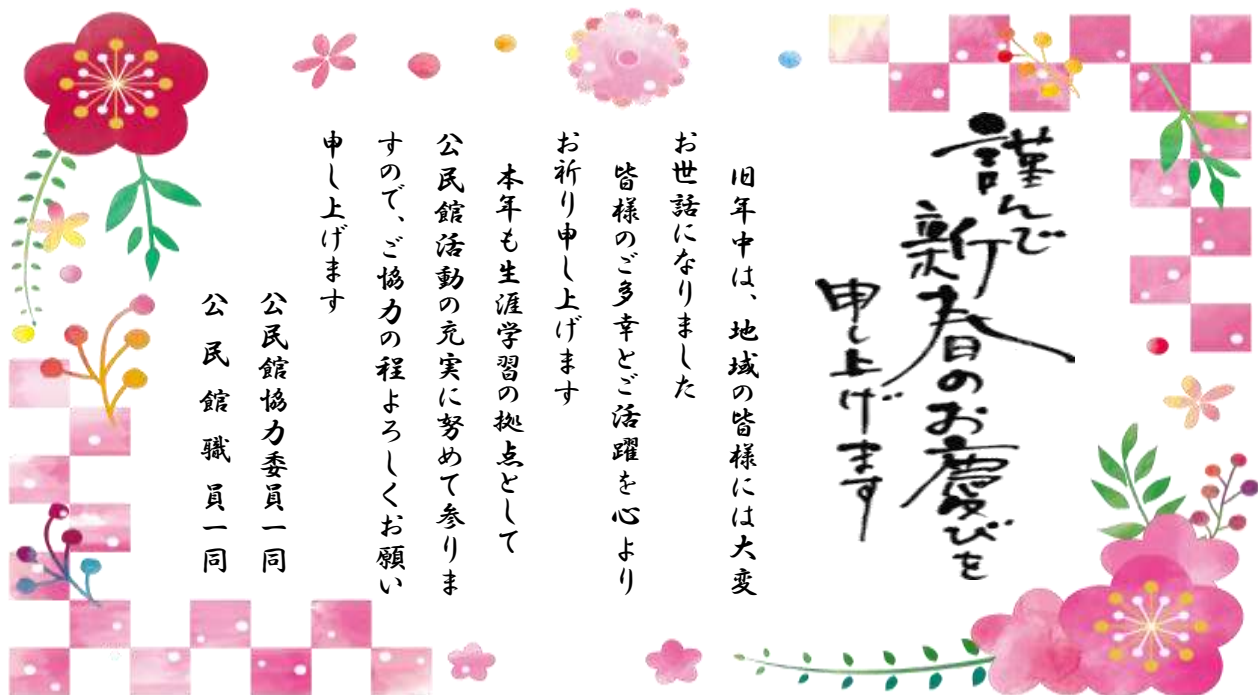 謹んで
新春のお慶びを
申し上げます
旧年中は、地域の皆様には大変
お世話になりました
皆様のご多幸とご活躍を心より
お祈り申し上げます
本年も生涯学習の拠点として
公民館活動の充実に努めて参りま
すので、ご協力の程よろしくお願い
申し上げます
公民館協力委員一同
公民館職員一同